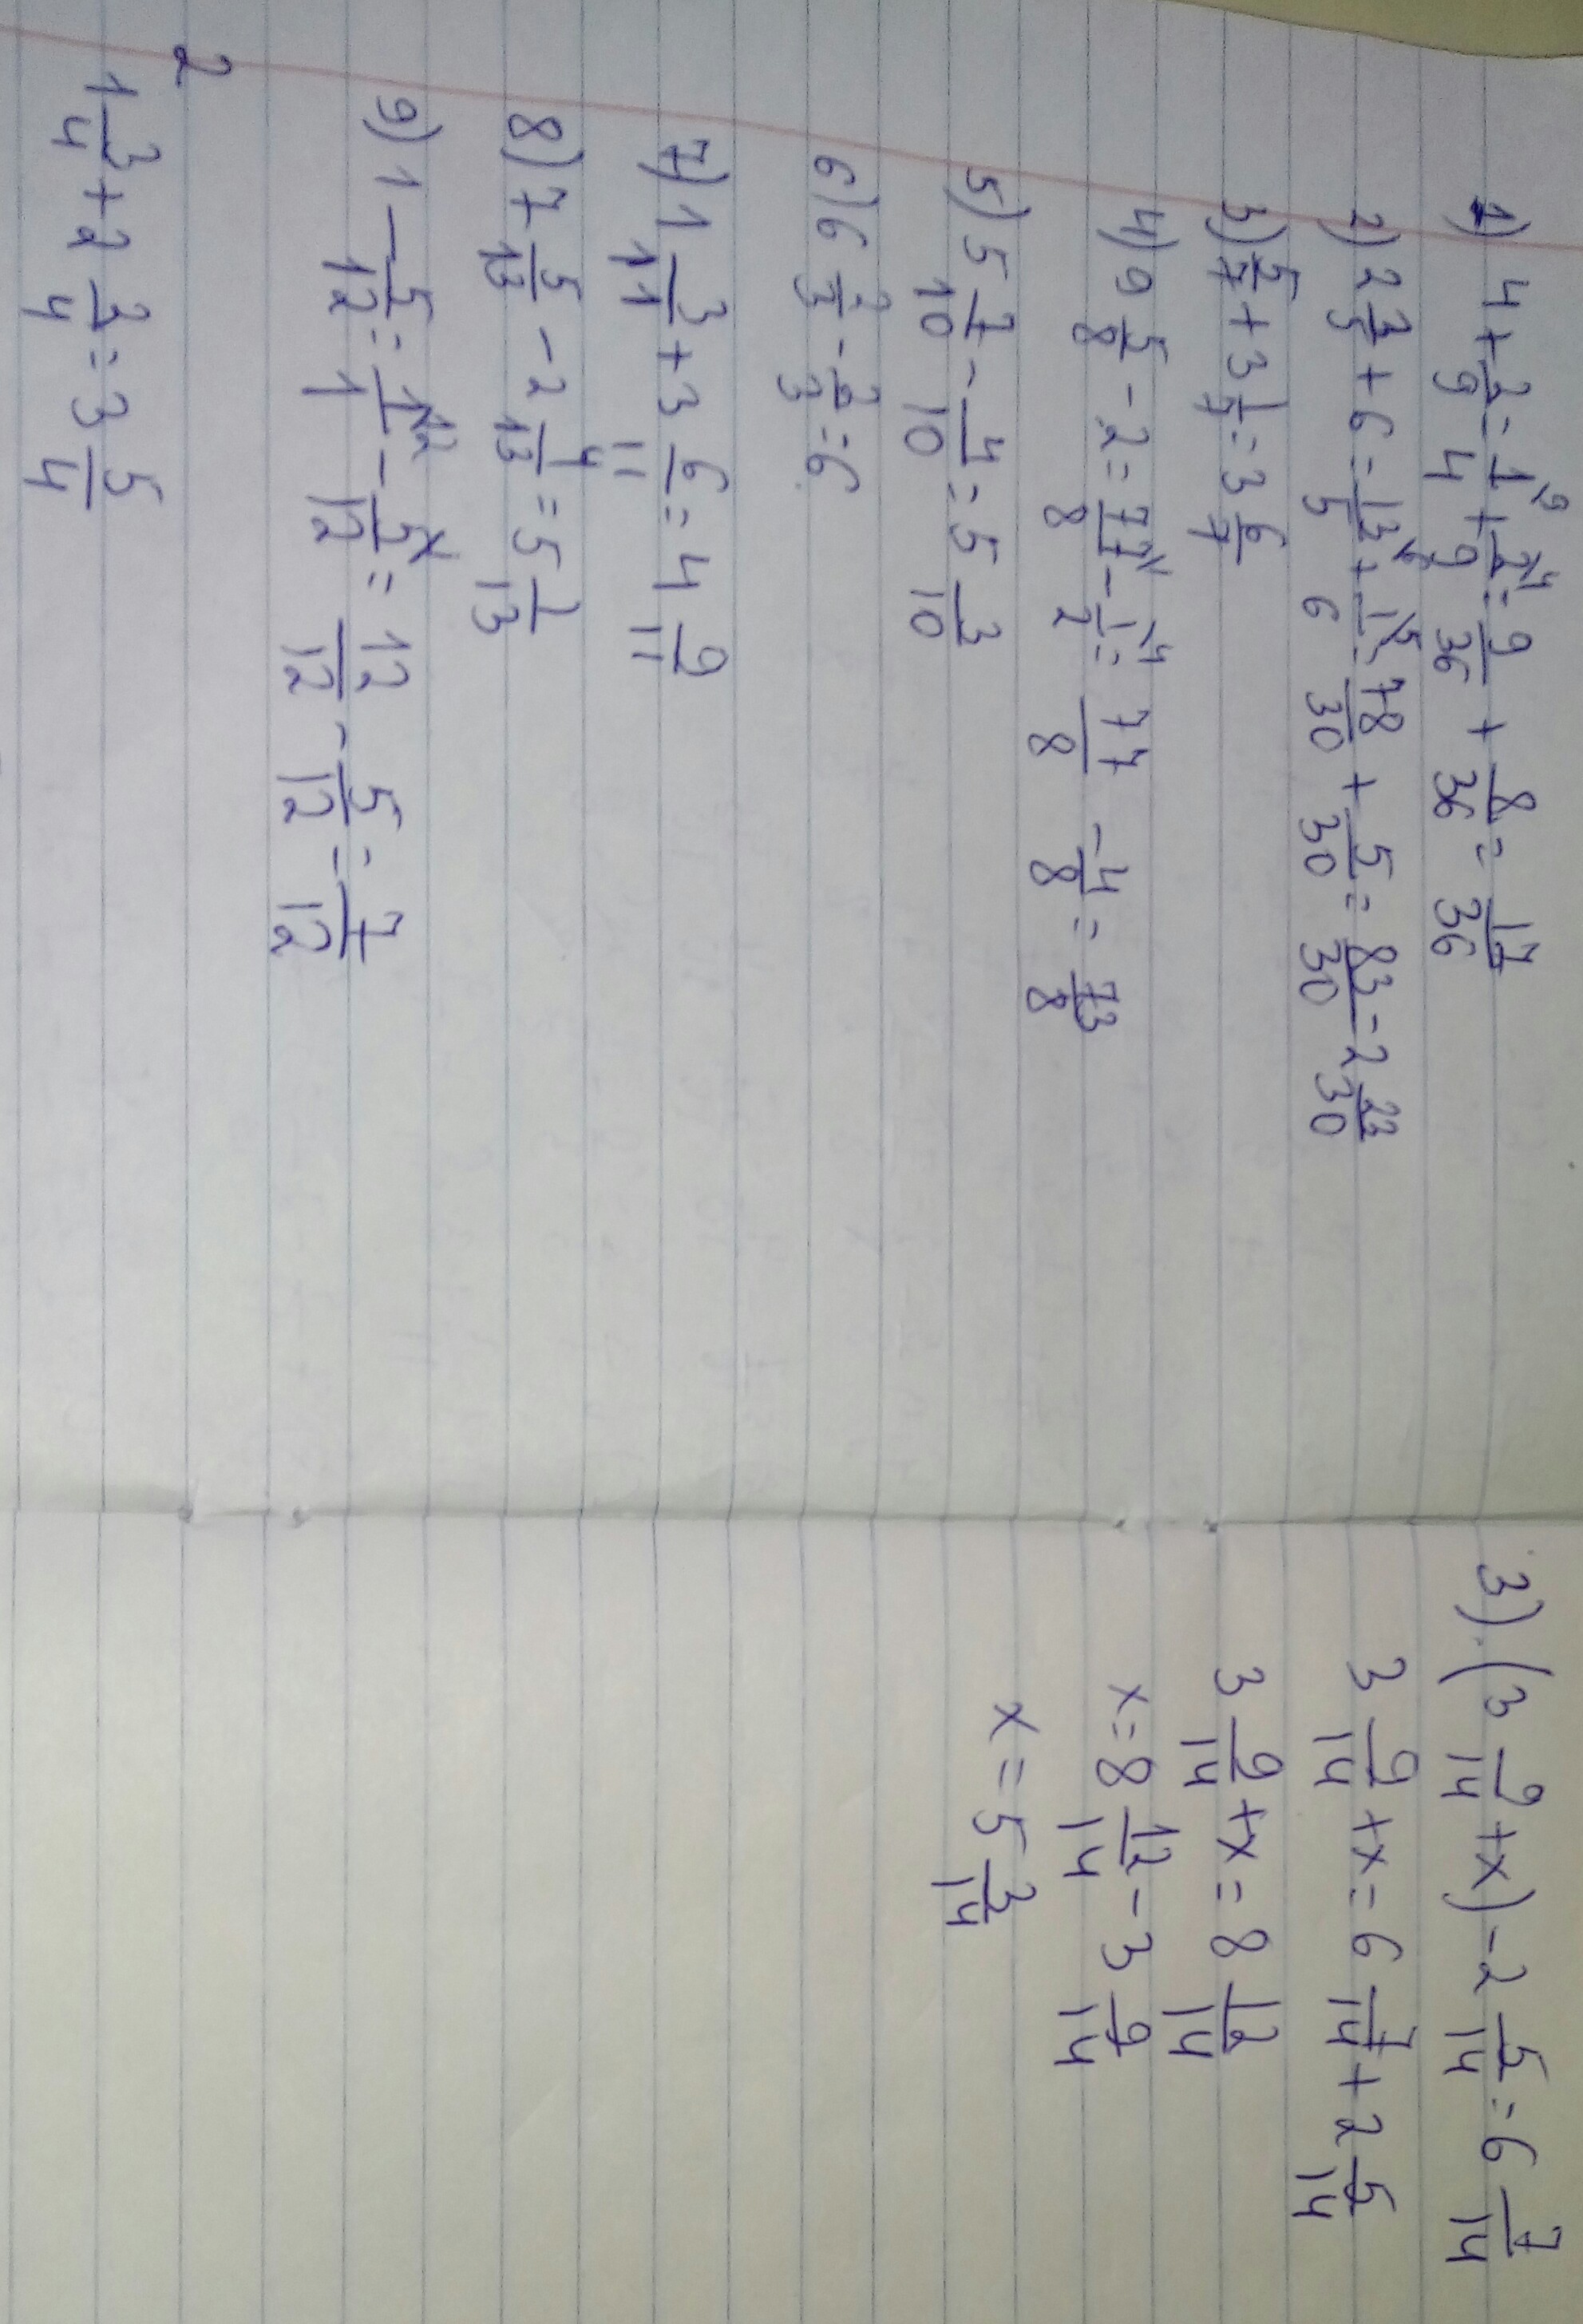 1) 4 + 2/9 = 1/4 + 2/9 = 9/36 + 8/36 = 17/36
2) 2 3/5 + 6 = 13/5 + 1/6 = 78/30 + 5/30 = 83/30 = 2 23/30
3) 5/7 + 3 1/7 = 3 6/7
4) 9 5/8 - 2 = 77/8 - 1/2 = 77/8 - 4/8 = 73/8
5) 5 7/10 - 4/10 = 5 3/10
6) 6 2/3 - 2/3 = 6
7) 1 3/11 + 3 6/11 = 4 9/11
8) 7 5/13 - 2 4/13 = 5 1/13
9) 1 - 5/12 = 1/1 - 5/12 = 12/12 - 5/12 = 7/12
2
1 3/4 + 2 2/4 = 3 5/4
3) (3 9/14 + x) - 2 5/14 = 6 7/14
3 9/14 + x = 6 7/14 + 2 5/14
3 9/14 + x = 8 12/14
x = 8 12/14 - 3 9/14
x = 5 3/14